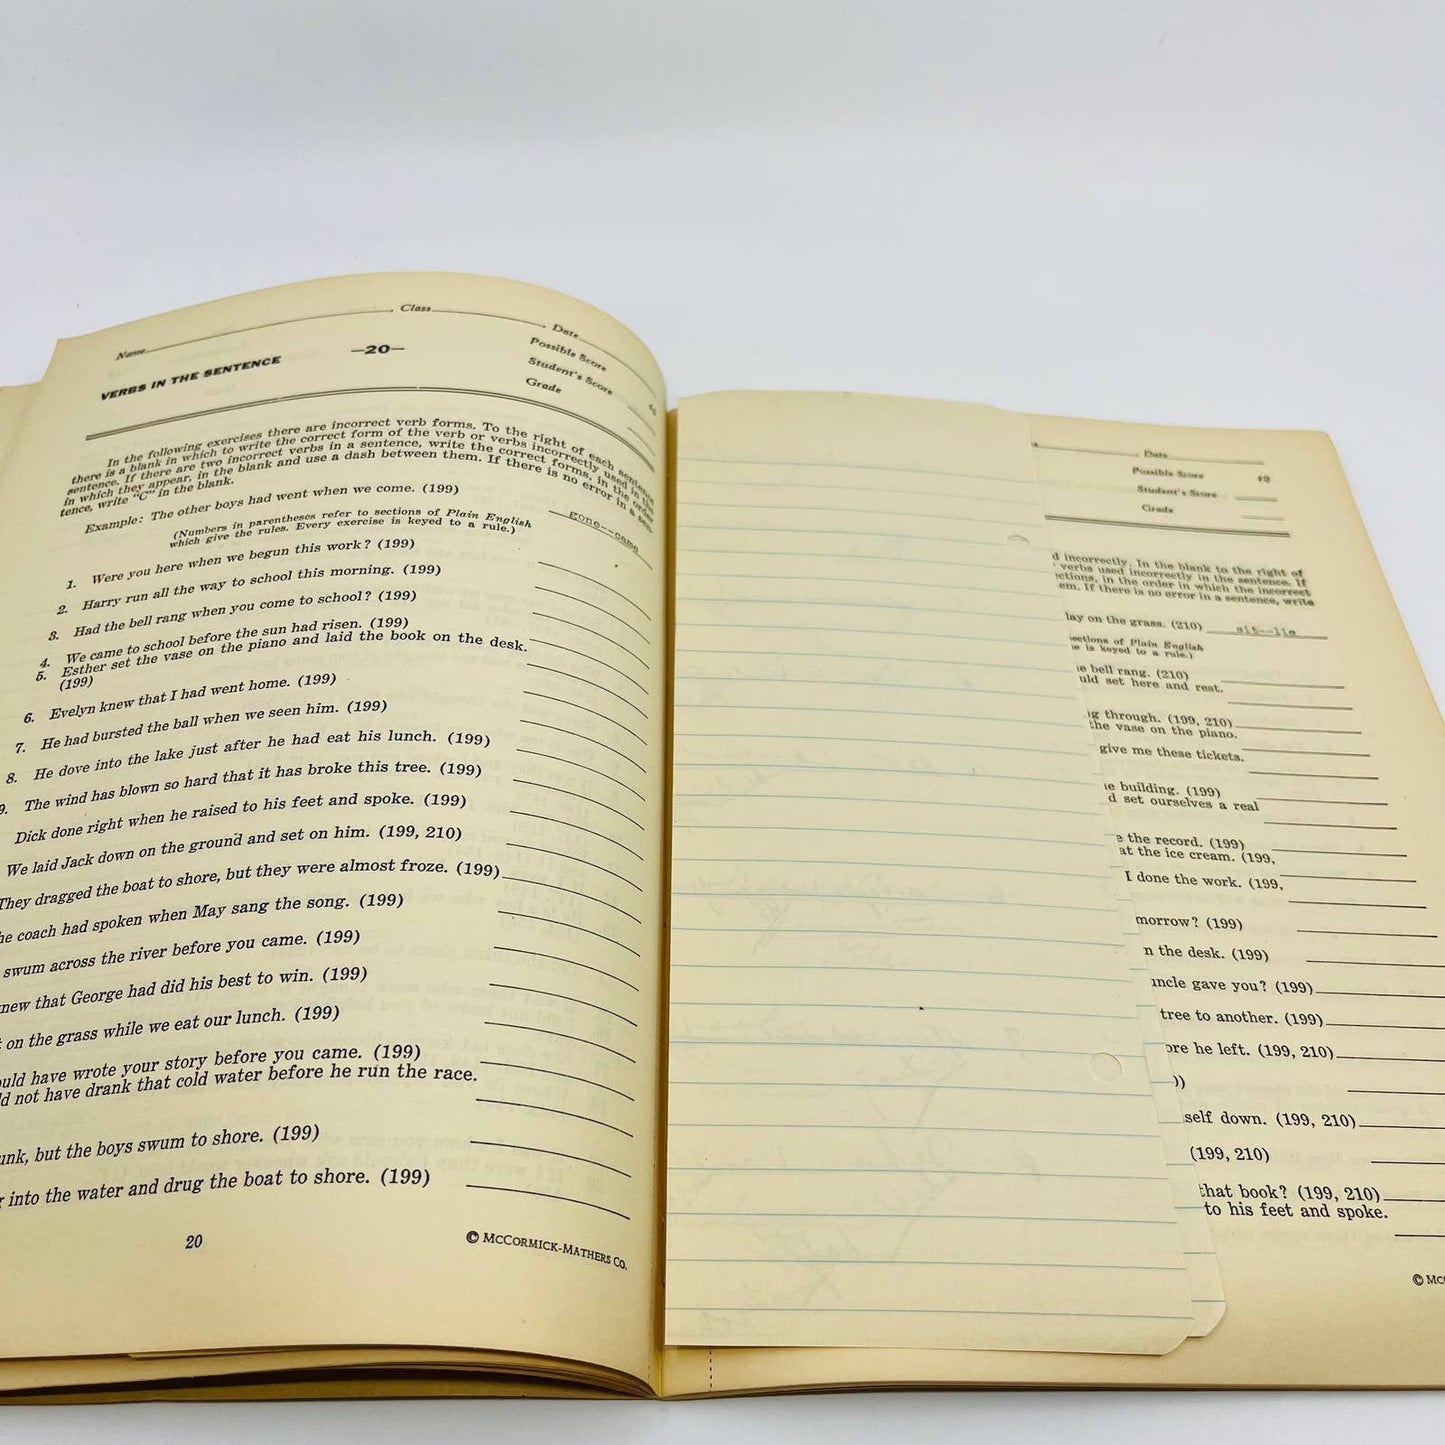 Name Class Date
VERBS IN THE SENTENCE —20— Possible Score
Student's Score
Grade
In the following exercises there are incorrect verb forms. To the right of each sentence
there is a blank in which to write the correct form of the verb or verbs incorrectly used in the
sentence. If there are two incorrect verbs in a sentence, write the correct forms, in the order
in which they appear, in the blank and use a dash between them. If there is no error in a sen-
tence, write "C" in the blank.
Example: The other boys had went when we come. (199) gone--came
(Numbers in parentheses refer to sections of Plain English
which give the rules. Every exercise is keyed to a rule.)
1. Were you here when we begun this work? (199)
2. Harry run all the way to school this morning. (199)
3. Had the bell rang when you come to school? (199)
4. We came to school before the sun had risen. (199)
5. Esther set the vase on the piano and laid the book on the desk.
(199)
6. Evelyn knew that I had went home. (199)
7. He had bursted the ball when we seen him. (199)
8. He dove into the lake just after he had eat his lunch. (199)
9. The wind has blown so hard that it has broke this tree. (199)
Dick done right when he raised to his feet and spoke. (199)
We laid Jack down on the ground and set on him. (199, 210)
They dragged the boat to shore, but they were almost froze. (199)
he coach had spoken when May sang the song. (199)
swum across the river before you came. (199)
new that George had did his best to win. (199)
on the grass while we eat our lunch. (199)
ould have wrote your story before you came. (199)
d not have drank that cold water before he run the race.
unk, but the boys swum to shore. (199)
into the water and drug the boat to shore. (199)
20
© McCORMICK-MATHERS CO.
Date
Possible Score 40
Student's Score
Grade
d incorrectly. In the blank to the right of
verbs used incorrectly in the sentence. If
ctions, in the order in which the incorrect
em. If there is no error in a sentence, write
lay on the grass. (210) sit--lie
sections of Plain English
e is keyed to a rule.)
e bell rang. (210)
uld set here and rest.
ng through. (199, 210)
the vase on the piano.
give me these tickets.
e building. (199)
d set ourselves a real
e the record. (199)
at the ice cream. (199,
I done the work. (199,
morrow? (199)
n the desk. (199)
uncle gave you? (199)
tree to another. (199)
ore he left. (199, 210)
))
self down. (199, 210)
(199, 210)
that book? (199, 210)
to his feet and spoke.
© MC